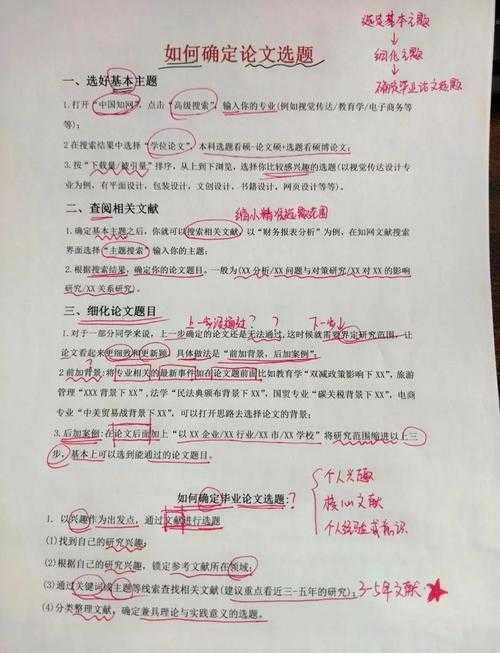 选定基本主题
↓
细化主题
↓
确定毕业论文选题
如何确定论文选题
一、选好基本主题
1.打开“中国知网”，点击“高级搜索”，输入你的专业(例如视觉传达/教育学/电子商务等
等);
2 在搜索结果中选择“学位论文”，本科选题看硕-论文硕+选题看硕博论文;
3.按“下载量/被引量”排序，从上到下浏览，选择你比较感兴趣的选题(以视觉传达设计专
业为例，有平面设计，包装设计，文创设计、书籍设计，网页设计等等)。
二、查阅相关文献
缩小精准选题范围
1.确定基本主题之后，你就可以搜索相关文献，以“财务报表分析”为例，在知网文献搜索
界面选择“主题搜索”输入你的主题;
2.根据搜索结果，确定你的论文题目。一般为(XX 分析/XX 问题与对策研究/XX 对 XX 的影响
研究/XX 关系研究)。
三、细化论文题目
上一步没通过？？ 下一步
1.对于一部分同学来说，上一步确定的论文还是无法通过,这时候就需要界定研究范围，让
论文看起来更细致和更新颖，具体做法是“前加背景，后加案例”;
2 前加背景:将专业相关的最新事件加在论文题目前面比如教育学“双减政策影响下 XX”,旅游
管理“XXX 背景下 XX”,法学“民法典颁布背景下 XX”，国贸专业“碳关税背景下 XX”，电商
专业“中美贸易战背景下 XX”，可以打开思路去选择论文的背景;
3.后加案例:在论文后面加上“以 XX 企业/XX 行业/XX 市/XX 学校”将研究范围缩进以上三
步，基本上可以选到能通过的论文题目。
个人兴趣
核心文献
如何确定毕业论文选题?
1. 以兴趣作为出发点，通过文献进行选题
(1)找到自己的研究兴趣;
(2)根据自己的研究兴趣，锁定参考文献所在领域;
(3)通过关键词或主题等线索查找相关文献(建议重点看近三-五年的研究);
3-5年文献★
(4)分类整理文献，确定兼具理论与实践意义的选题。